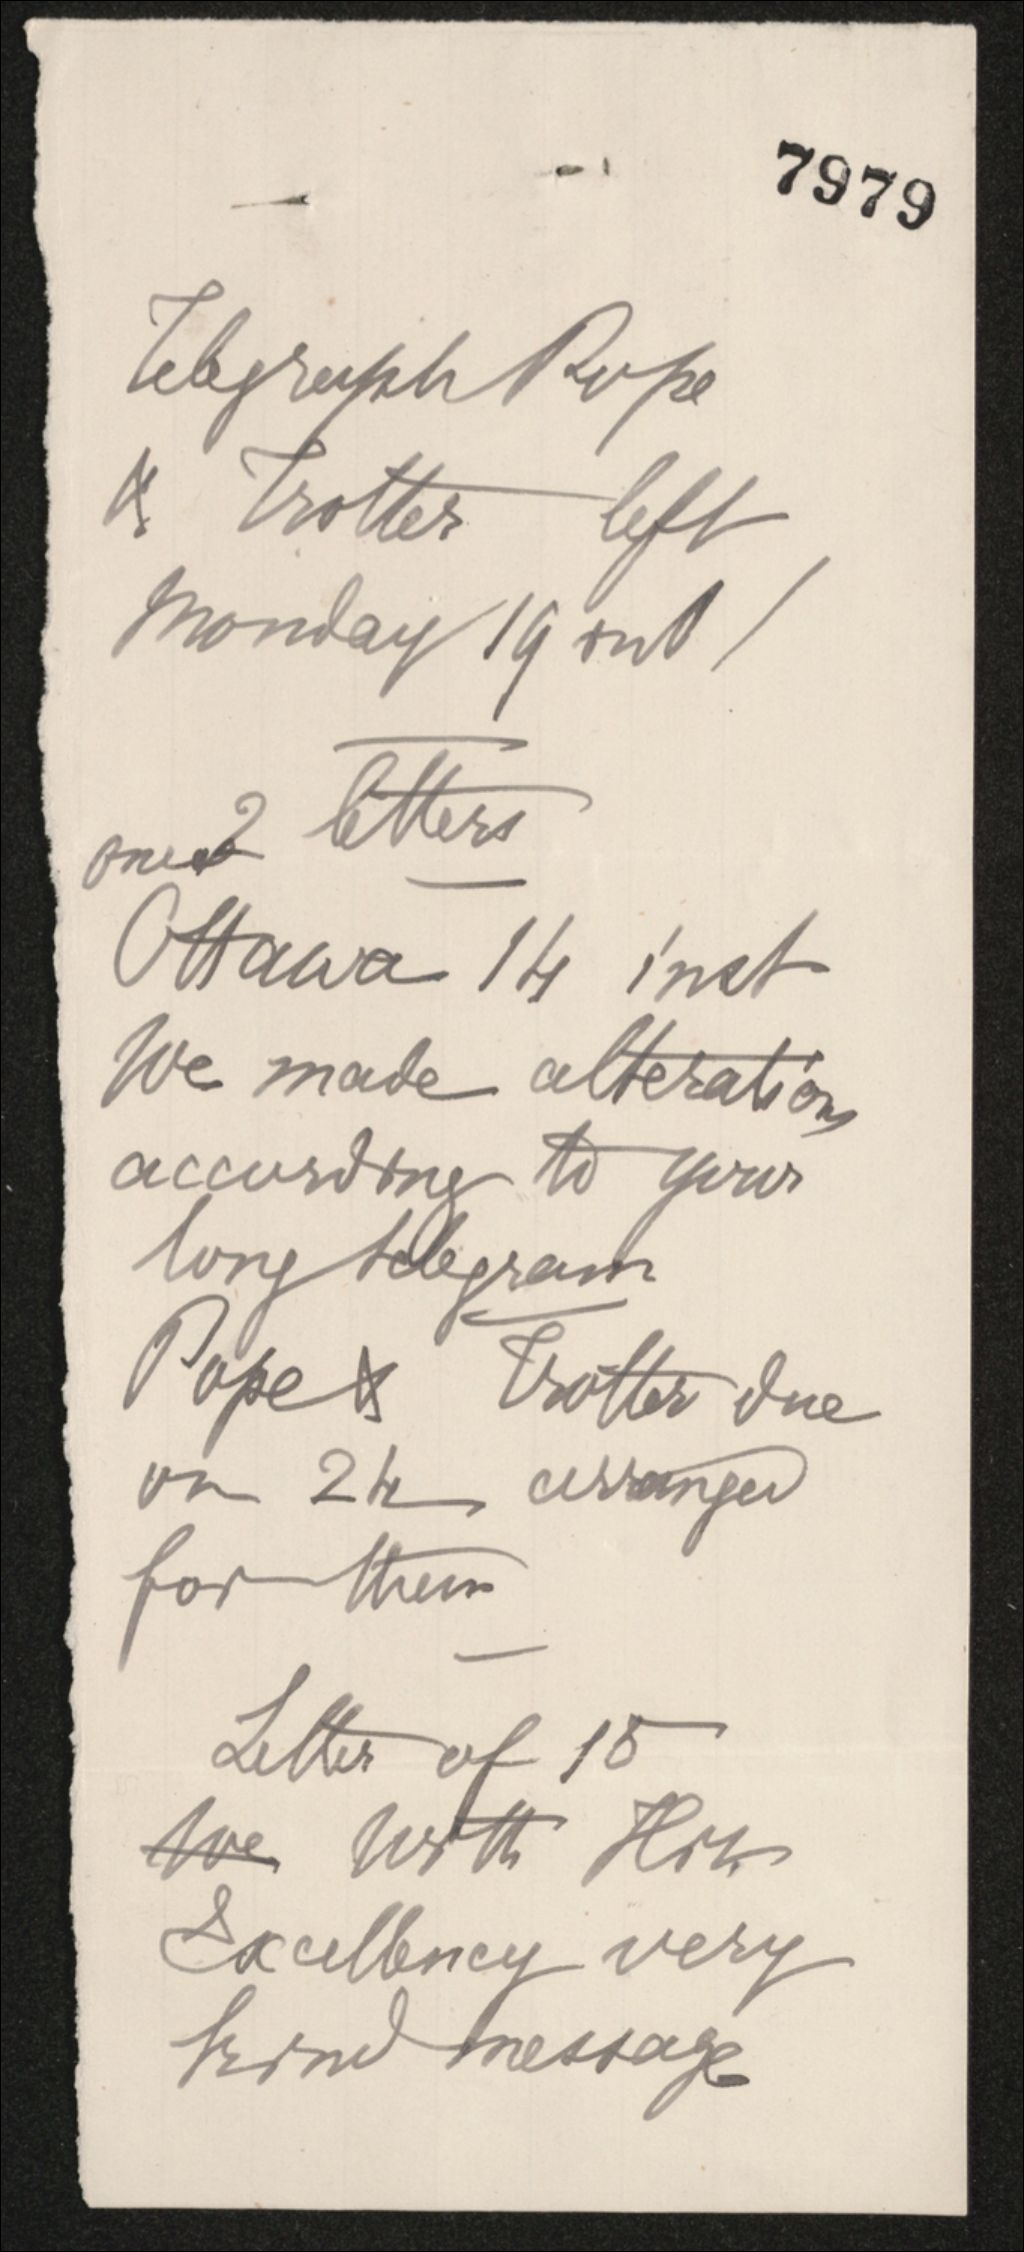 7979
Telegraph Pope
& Trotter left
Monday 19 inst /
2 letters
one
Ottawa 14 inst
We made alterations
according to your
long telegram
Pope & Trotter due
on 24 arranged
for them
Letter of 15
We With His
Excellency very
kind message